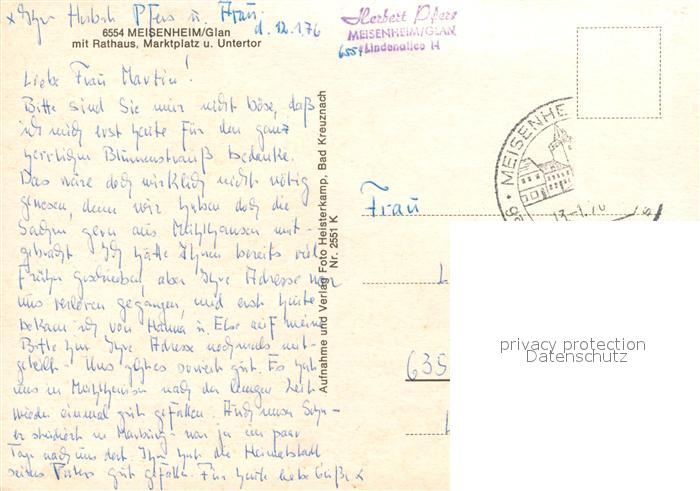 x Ihr Herbert Pfers u. Frau
6554 MEISENHEIM/Glan
mit Rathaus, Marktplatz u. Untertor
d. 12.1.76
Herbert Pfers
MEISENHEIM/GLAN
Lindenallee 14
Liebe Frau Martin!
Bitte sind Sie mir nicht böse, daß
ich mich erst heute für den ganz
herrlichen Blumenstrauß bedanke.
Das wäre doch wirklich nicht nötig
gewesen, denn wir haben doch die
Sachen gern aus Mühlhausen mit-
gebracht. Ich hätte Ihnen bereits viel
früher geschrieben, aber Ihre Adresse war
uns verloren gegangen, und erst heute
bekam ich von Hanna u. Else auf meine
Bitte hin Ihre Adresse nochmals mit-
geteilt. Uns geht es soweit gut. Es hat
uns in Mühlhausen nach der langen Zeit
wieder einmal gut gefallen. Auch unser Sohn -
er studiert in Marburg - war ja ein paar
Tage nach uns dort. Ihm hat die Heimatstadt
seines Vaters gut gefallen. Für heute liebe Grüße x
Aufnahme und Verlag Foto Heisterkamp, Bad Kreuznach
Nr. 2551 K
MEISENHE
13.-1.76
Frau
635
privacy protection
Datenschutz